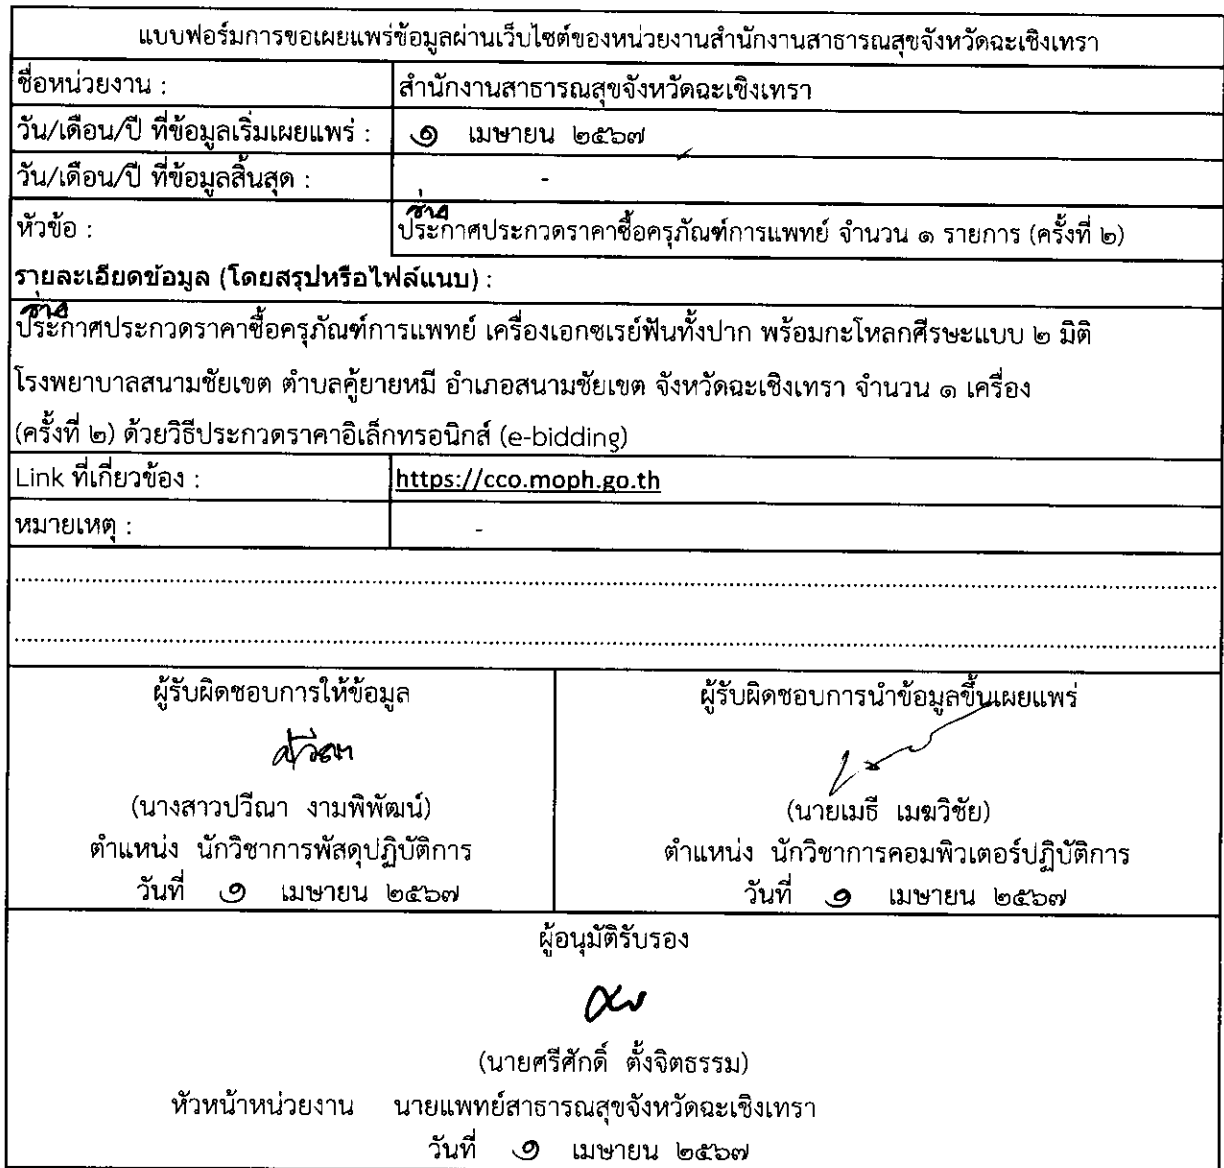 แบบฟอร์มการขอเผยแพร่ข้อมูลผ่านเว็บไซต์ของหน่วยงานสำนักงานสาธารณสุขจังหวัดฉะเชิงเทรา
ชื่อหน่วยงาน : สำนักงานสาธารณสุขจังหวัดฉะเชิงเทรา
วัน/เดือน/ปี ที่ข้อมูลเริ่มเผยแพร่ : ๑ เมษายน ๒๕๖๗
วัน/เดือน/ปี ที่ข้อมูลสิ้นสุด : -
ร่าง
หัวข้อ : ประกาศประกวดราคาซื้อครุภัณฑ์การแพทย์ จำนวน ๑ รายการ (ครั้งที่ ๒)
รายละเอียดข้อมูล (โดยสรุปหรือไฟล์แนบ) :
ร่าง
ประกาศประกวดราคาซื้อครุภัณฑ์การแพทย์ เครื่องเอกซเรย์ฟันทั้งปาก พร้อมกะโหลกศีรษะแบบ ๒ มิติ
โรงพยาบาลสนามชัยเขต ตำบลคู้ยายหมี อำเภอสนามชัยเขต จังหวัดฉะเชิงเทรา จำนวน ๑ เครื่อง
(ครั้งที่ ๒) ด้วยวิธีประกวดราคาอิเล็กทรอนิกส์ (e-bidding)
Link ที่เกี่ยวข้อง : https://cco.moph.go.th
หมายเหตุ : -
ผู้รับผิดชอบการให้ข้อมูล
ปวีณา
(นางสาวปวีณา งามพิพัฒน์)
ตำแหน่ง นักวิชาการพัสดุปฏิบัติการ
วันที่ ๑ เมษายน ๒๕๖๗
ผู้รับผิดชอบการนำข้อมูลขึ้นเผยแพร่
(นายเมธี เมฆวิชัย)
ตำแหน่ง นักวิชาการคอมพิวเตอร์ปฏิบัติการ
วันที่ ๑ เมษายน ๒๕๖๗
ผู้อนุมัติรับรอง
(นายศรีศักดิ์ ตั้งจิตธรรม)
หัวหน้าหน่วยงาน นายแพทย์สาธารณสุขจังหวัดฉะเชิงเทรา
วันที่ ๑ เมษายน ๒๕๖๗